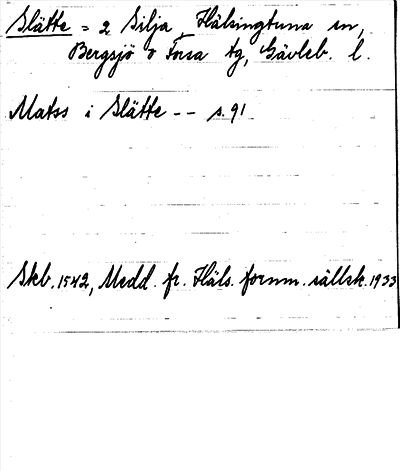 Slätte = 2 Silja, Hälsingtuna sn,
Bergsjö o Forsa tg, Gävleb. l.
Matss i Slätte -- s. 91
Skb. 1542, Medd. fr. Häls. fornm. sällsk. 1933